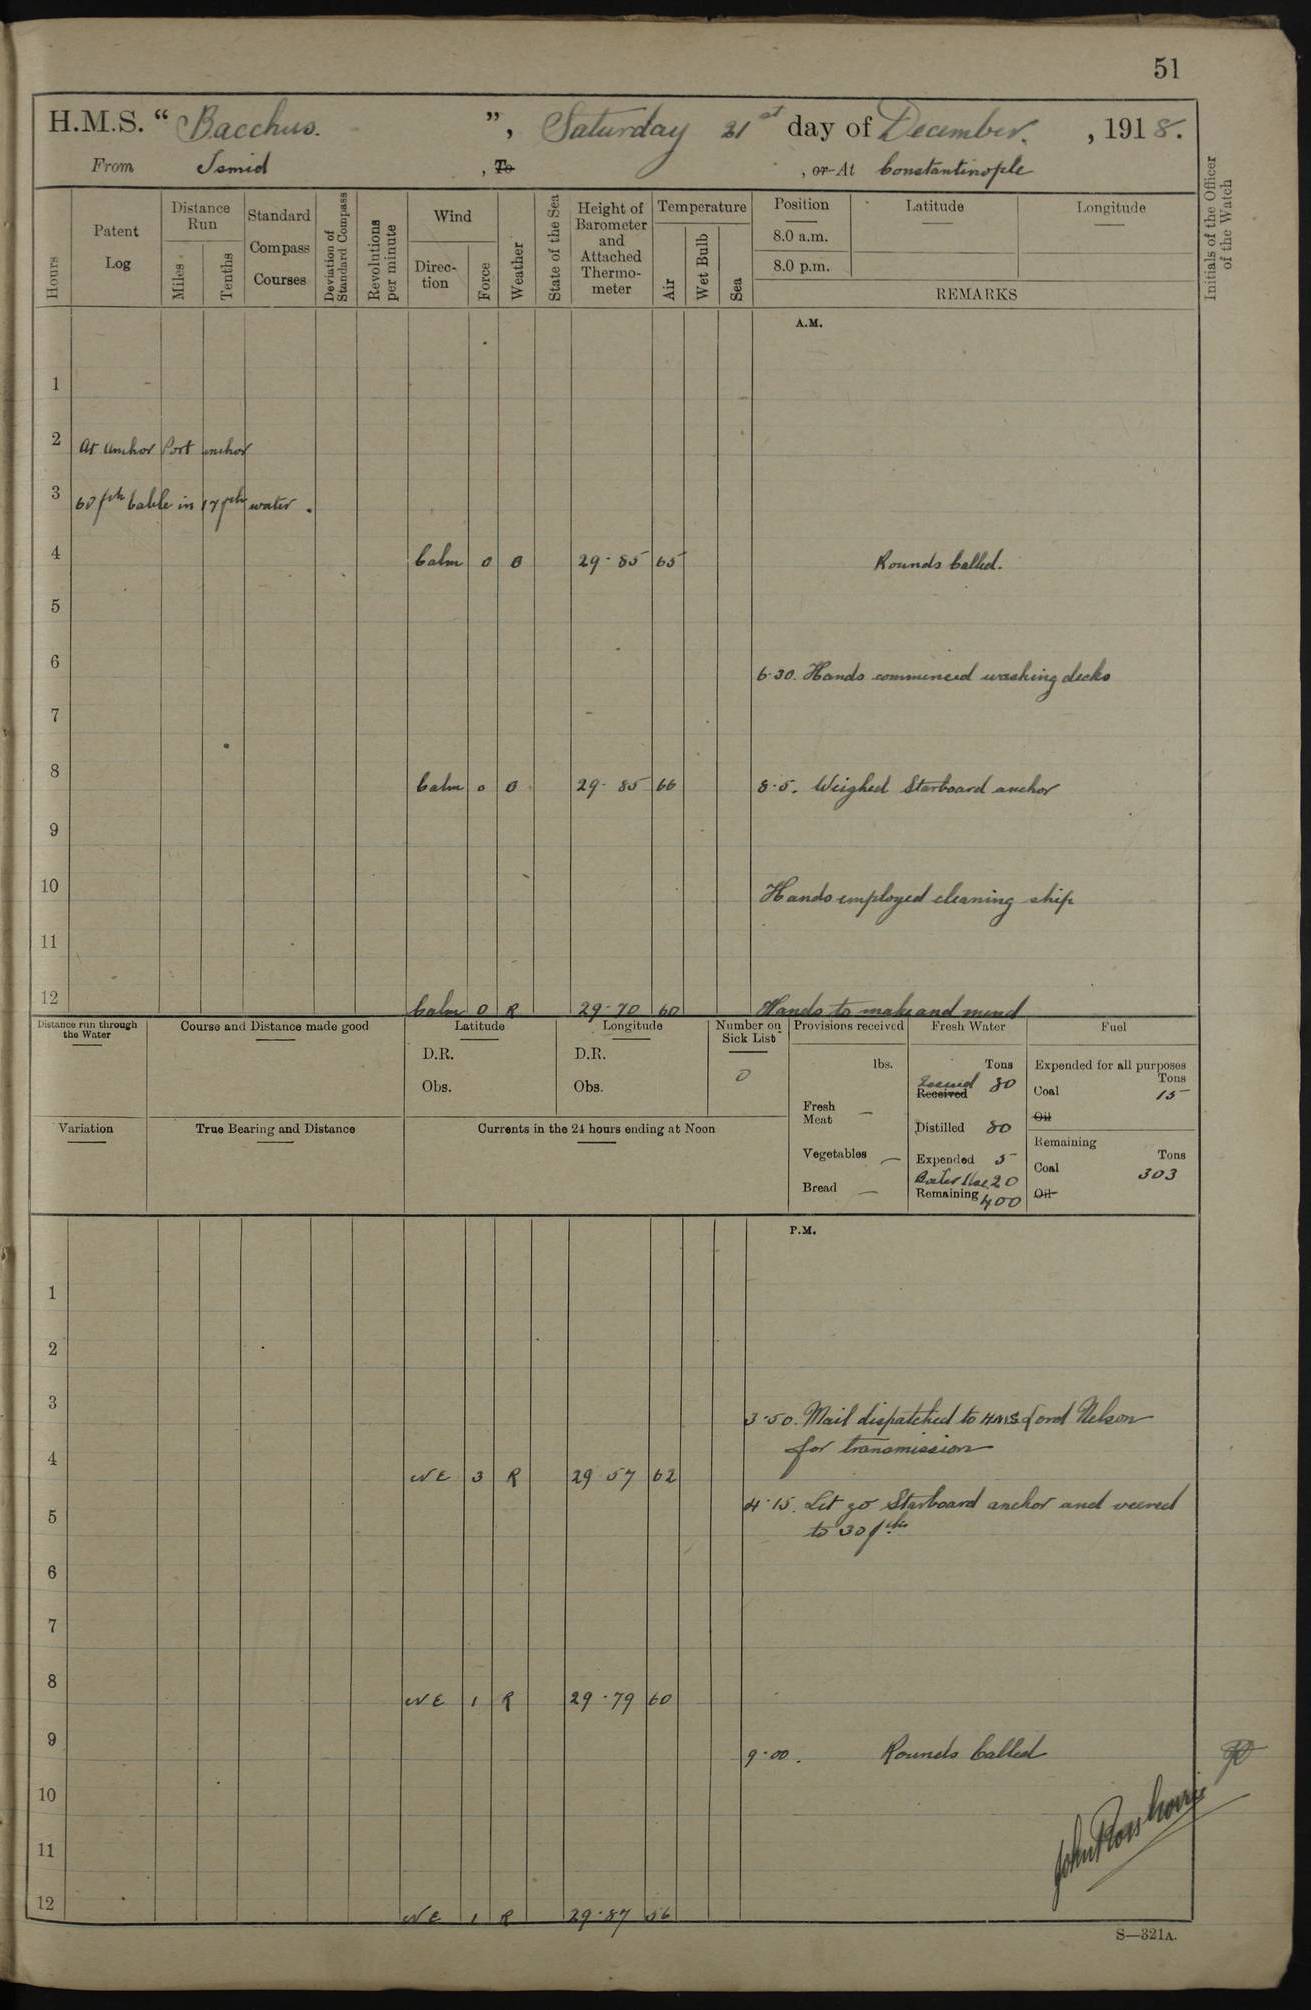 51
H.M.S. “ Bacchus. ”, Saturday 21st day of December. , 1918.
From Ismid , To , or At Constantinople
Hours
Patent Log
Distance Run
Miles
Tenths
Standard Compass Courses
Deviation of Standard Compass
Revolutions per minute
Wind
Direction
Force
Weather
State of the Sea
Height of Barometer and Attached Thermometer
Temperature
Air
Wet Bulb
Sea
Position
8.0 a.m.
8.0 p.m.
Latitude
Longitude
REMARKS
Initials of the Officer of the Watch
A.M.
1
2 At Anchor Port anchor
3 60 fth Cable in 17 fth water.
4 Calm 0 O 29·85 65 Rounds Called.
5
6 6·30. Hands commenced washing decks
7
8 Calm 0 O 29·85 66 8·5. Weighed Starboard anchor
9
10 Hands employed cleaning ship
11
12 Calm 0 R 29·70 60 Hands to make and mend
Distance run through the Water
Course and Distance made good
Latitude
D.R.
Obs.
Longitude
D.R.
Obs.
Number on Sick List
0
Provisions received
lbs.
Fresh Meat —
Vegetables —
Bread —
Fresh Water
Tons
Received 80
Distilled 80
Expended 5
Boiler Use 20
Remaining 400
Fuel
Expended for all purposes
Tons
Coal 15
Oil
Remaining
Tons
Coal 303
Oil
Variation
True Bearing and Distance
Currents in the 24 hours ending at Noon
P.M.
1
2
3 3·50. Mail dispatched to HMS Lord Nelson
for transmission
4 NE 3 R 29 57 62
4·15. Let go Starboard anchor and veered
5 to 30 fths
6
7
8 NE 1 R 29·79 60
9 9·00. Rounds Called
10
11
12 NE 1 R 29·87 56
S—321A.